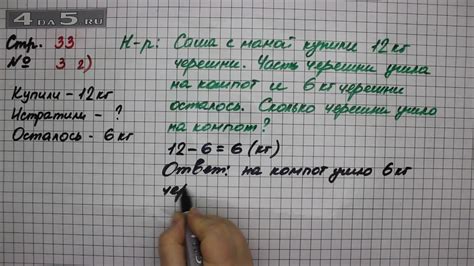 4DA5.RU
Стр. 33
№ 3 2)
Купили - 12 кг
Истратили - ?
Осталось - 6 кг
Н-р: Саша с мамой купили 12 кг
черешни. Часть черешни ушла
на компот и 6 кг черешни
осталось. Сколько черешни ушло
на компот?
12 - 6 = 6 (кг)
Ответ: на компот ушло 6 кг
чер